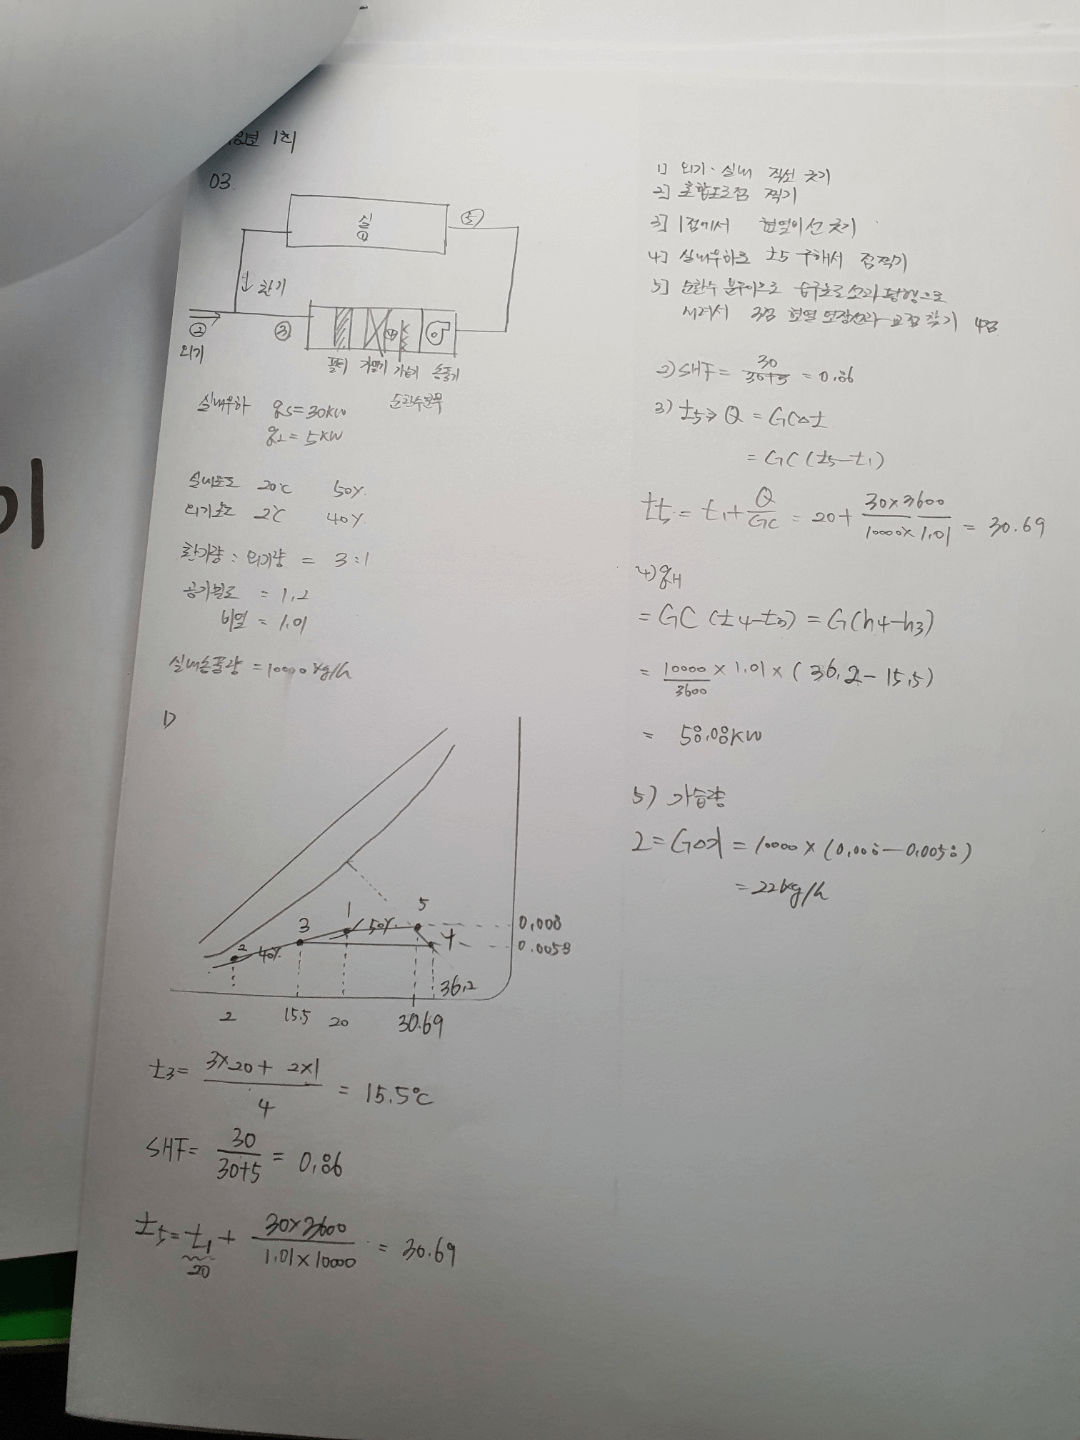 1회
03.
실
①
⑤
↓ 환기
②
외기
③
④
필터 가열기 가습기 송풍기
순환수분무
실내부하 qs=30kW
qL=5kW
실내온도 20℃ 50%
외기온도 2℃ 40%
환기량 : 외기량 = 3:1
공기밀도 = 1.2
비열 = 1.01
실내송풍량 = 10000kg/h
1)
1
50%
5
3
2
40%
4
0.008
0.0058
36.2
2
15.5
20
30.69
t3= 3×20+ 2×1 / 4 = 15.5℃
SHF= 30 / 30+5 = 0.86
t5= t1 + 30×3600 / 1.01×10000 = 30.69
20
01
1] 외기·실내 직선 긋기
2] 혼합포인점 찍기
3] 1점에서 현열비선 긋기
4] 실내부하로 t5 구해서 점찍기
5] 순환수 분무이므로 습구온도선과 평행으로
3점 현열 연장선과 교점 찾기 4점
2) SHF= 30 / 30+5 = 0.86
3) t5⇒ Q = GCΔt
= GC (t5-t1)
t5 = t1+ Q / GC = 20+ 30×3600 / 10000×1.01 = 30.69
4) qH
= GC (t4-t3) = G(h4-h3)
= 10000 / 3600 × 1.01 × (36.2 - 15.5)
= 58.08kW
5) 가습량
L=GΔx = 10000 × (0.008-0.0058)
= 22kg/h